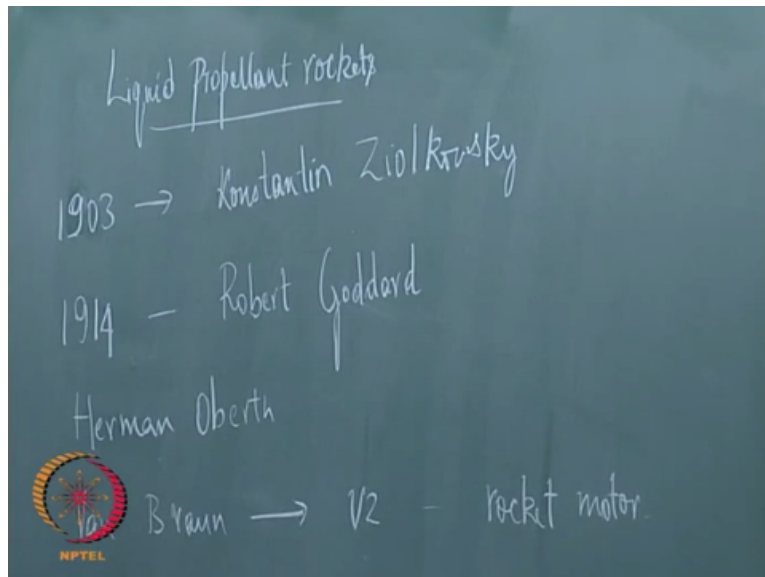 Liquid Propellant rockets
1903 → Konstantin Ziolkovsky
1914 - Robert Goddard
Herman Oberth
Braun → V2 - rocket motor.
NPTEL